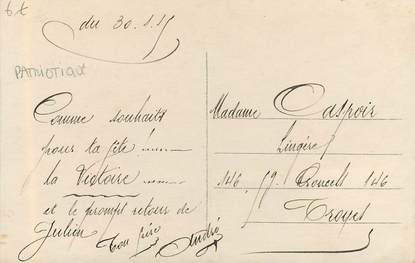 6€
du 30.1.15
PATRIOTIQUE
Comme souhaits
pour ta fête !........
la Victoire ........
et le prompt retour de
Julien
Ton frère
André
Madame Caspoir
Lingère
146. Fg. Croncels 146
Troyes